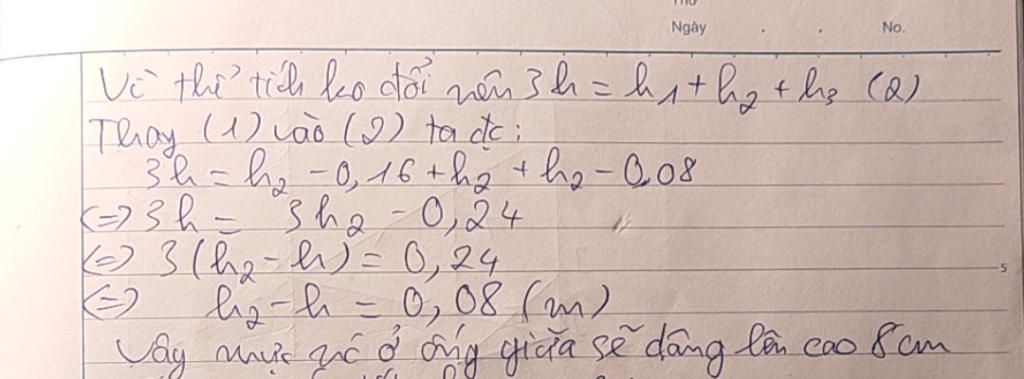 Ngày . . No.
Vì thể tích ko đổi nên 3h = h₁ + h₂ + h₃ (2)
Thay (1) vào (2) ta đc:
3h = h₂ - 0,16 + h₂ + h₂ - 0,08
<=> 3h = 3h₂ - 0,24
<=> 3(h₂ - h) = 0,24
5
<=> h₂ - h = 0,08 (m)
Vậy mực nc ở ống giữa sẽ dâng lên cao 8cm